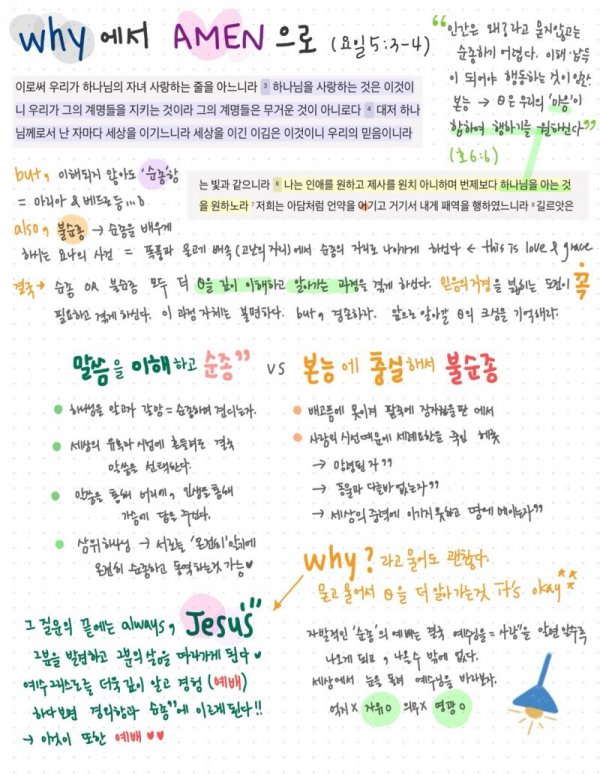 why 에서 AMEN 으로 (요일 5:3-4)
"인간은 왜?라고 묻지않고는
순종하기 어렵다. 이해·납득
이 되어야 행동하는 것이 인간
본능 → θ은 우리의 '마음'이
함하여 행하기를 원하신다"
(호 6:6)
이로써 우리가 하나님의 자녀 사랑하는 줄을 아느니라 3 하나님을 사랑하는 것은 이것이
니 우리가 그의 계명들을 지키는 것이라 그의 계명들은 무거운 것이 아니로다 4 대저 하나
님께로서 난 자마다 세상을 이기느니라 세상을 이긴 이김은 이것이니 우리의 믿음이니라
but, 이해되지 않아도 '순종'함
= 마리아 & 베드로 등...δ
는 빛과 같으니라 6 나는 인애를 원하고 제사를 원치 아니하며 번제보다 하나님을 아는 것
을 원하노라 7 저희는 아담처럼 언약을 어기고 거기서 내게 패역을 행하였느니라 8 길르앗은
also, 불순종 → 순종을 배우게
하시는 요나의 사건 = 폭풍과 물고기 뱃속 (고난의 자리)에서 순종의 자리로 나아가게 하신다 ← this is love & grace
결국 → 순종 OR 불순종 모두 더 θ을 깊이 이해하고 알아가는 과정을 겪게 하신다. 믿음의 지경을 넓히는 도전이 꼭
필요하고 겪게 하신다. 이 과정 자체는 불편하다. but, 겸손하라. 앞으로 알아갈 θ의 크심을 기억해라.
말씀을 이해하고 순종" vs 본능에 충실해서 불순종
하나님을 알고가 각양 = 순종하며 견디는가.
세상의 유혹과 시험에 흔들려도 결국
말씀을 선택한다.
말씀을 통해 머리에, 인생을 통해
가슴에 답을 주신다.
삼위 하나님 → 서로를 '온전히' 알기에
온전히 순종하고 동역하는것 가능♥
배고픔에 못이겨 팥죽에 장자권을 판 에서
사람의 시선때문에 세례요한을 죽인 헤롯
→ 망령된 자"
→ 동물과 다를바 없는자"
→ 세상의 중력에 이기지 못하고 땅에 매이는자"
why? 라고 물어도 괜찮다.
묻고 물어서 θ을 더 알아가는것 it's okay**
그 걸음의 끝에는 always, Jesus"
그분을 발견하고 그분의 삶을 따라가게 된다♥
예수 그리스도를 더욱 깊이 알고 경험 (예배)
하다보면 경외함과 순종"에 이르게 된다!!
→ 이것이 또한 예배♥♥
자발적인 '순종'의 예배는 결국 예수님을 = 사랑"을 알면 알수록
나오게 되고, 나올수 밖에 없다.
세상에서 눈을 돌려 예수님을 바라보자.
억지X 자유O 의무X 영광O